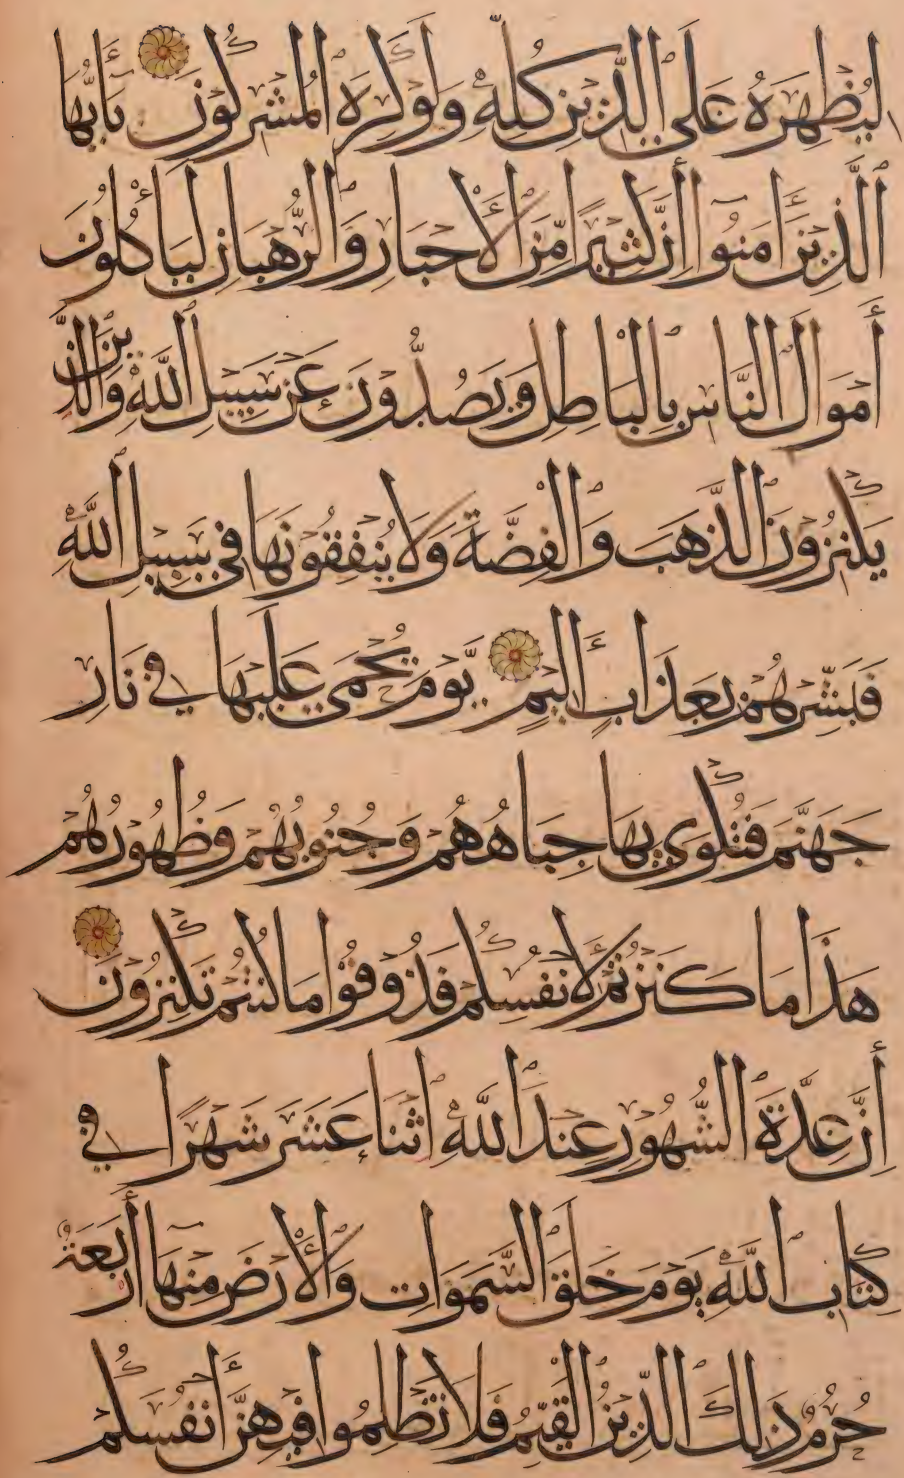 لِيُظْهِرَهُ عَلَى الدِّينِ كُلِّهِ وَلَوْ كَرِهَ الْمُشْرِكُونَ يَأَيُّهَا
الَّذِينَ آمَنُوا إِنَّ كَثِيرًا مِّنَ الْأَحْبَارِ وَالرُّهْبَانِ لَيَأْكُلُونَ
أَمْوَالَ النَّاسِ بِالْبَاطِلِ وَيَصُدُّونَ عَن سَبِيلِ اللَّهِ وَالَّذِينَ
يَكْنِزُونَ الذَّهَبَ وَالْفِضَّةَ وَلَا يُنفِقُونَهَا فِي سَبِيلِ اللَّهِ
فَبَشِّرْهُم بِعَذَابٍ أَلِيمٍ يَوْمَ يُحْمَى عَلَيْهَا فِي نَارِ
جَهَنَّمَ فَتُكْوَى بِهَا جِبَاهُهُمْ وَجُنُوبُهُمْ وَظُهُورُهُمْ
هَذَا مَا كَنَزْتُمْ لِأَنفُسِكُمْ فَذُوقُوا مَا كُنتُمْ تَكْنِزُونَ
إِنَّ عِدَّةَ الشُّهُورِ عِندَ اللَّهِ اثْنَا عَشَرَ شَهْرًا فِي
كِتَابِ اللَّهِ يَوْمَ خَلَقَ السَّمَوَاتِ وَالْأَرْضَ مِنْهَا أَرْبَعَةٌ
حُرُمٌ ذَلِكَ الدِّينُ الْقَيِّمُ فَلَا تَظْلِمُوا فِيهِنَّ أَنفُسَكُمْ